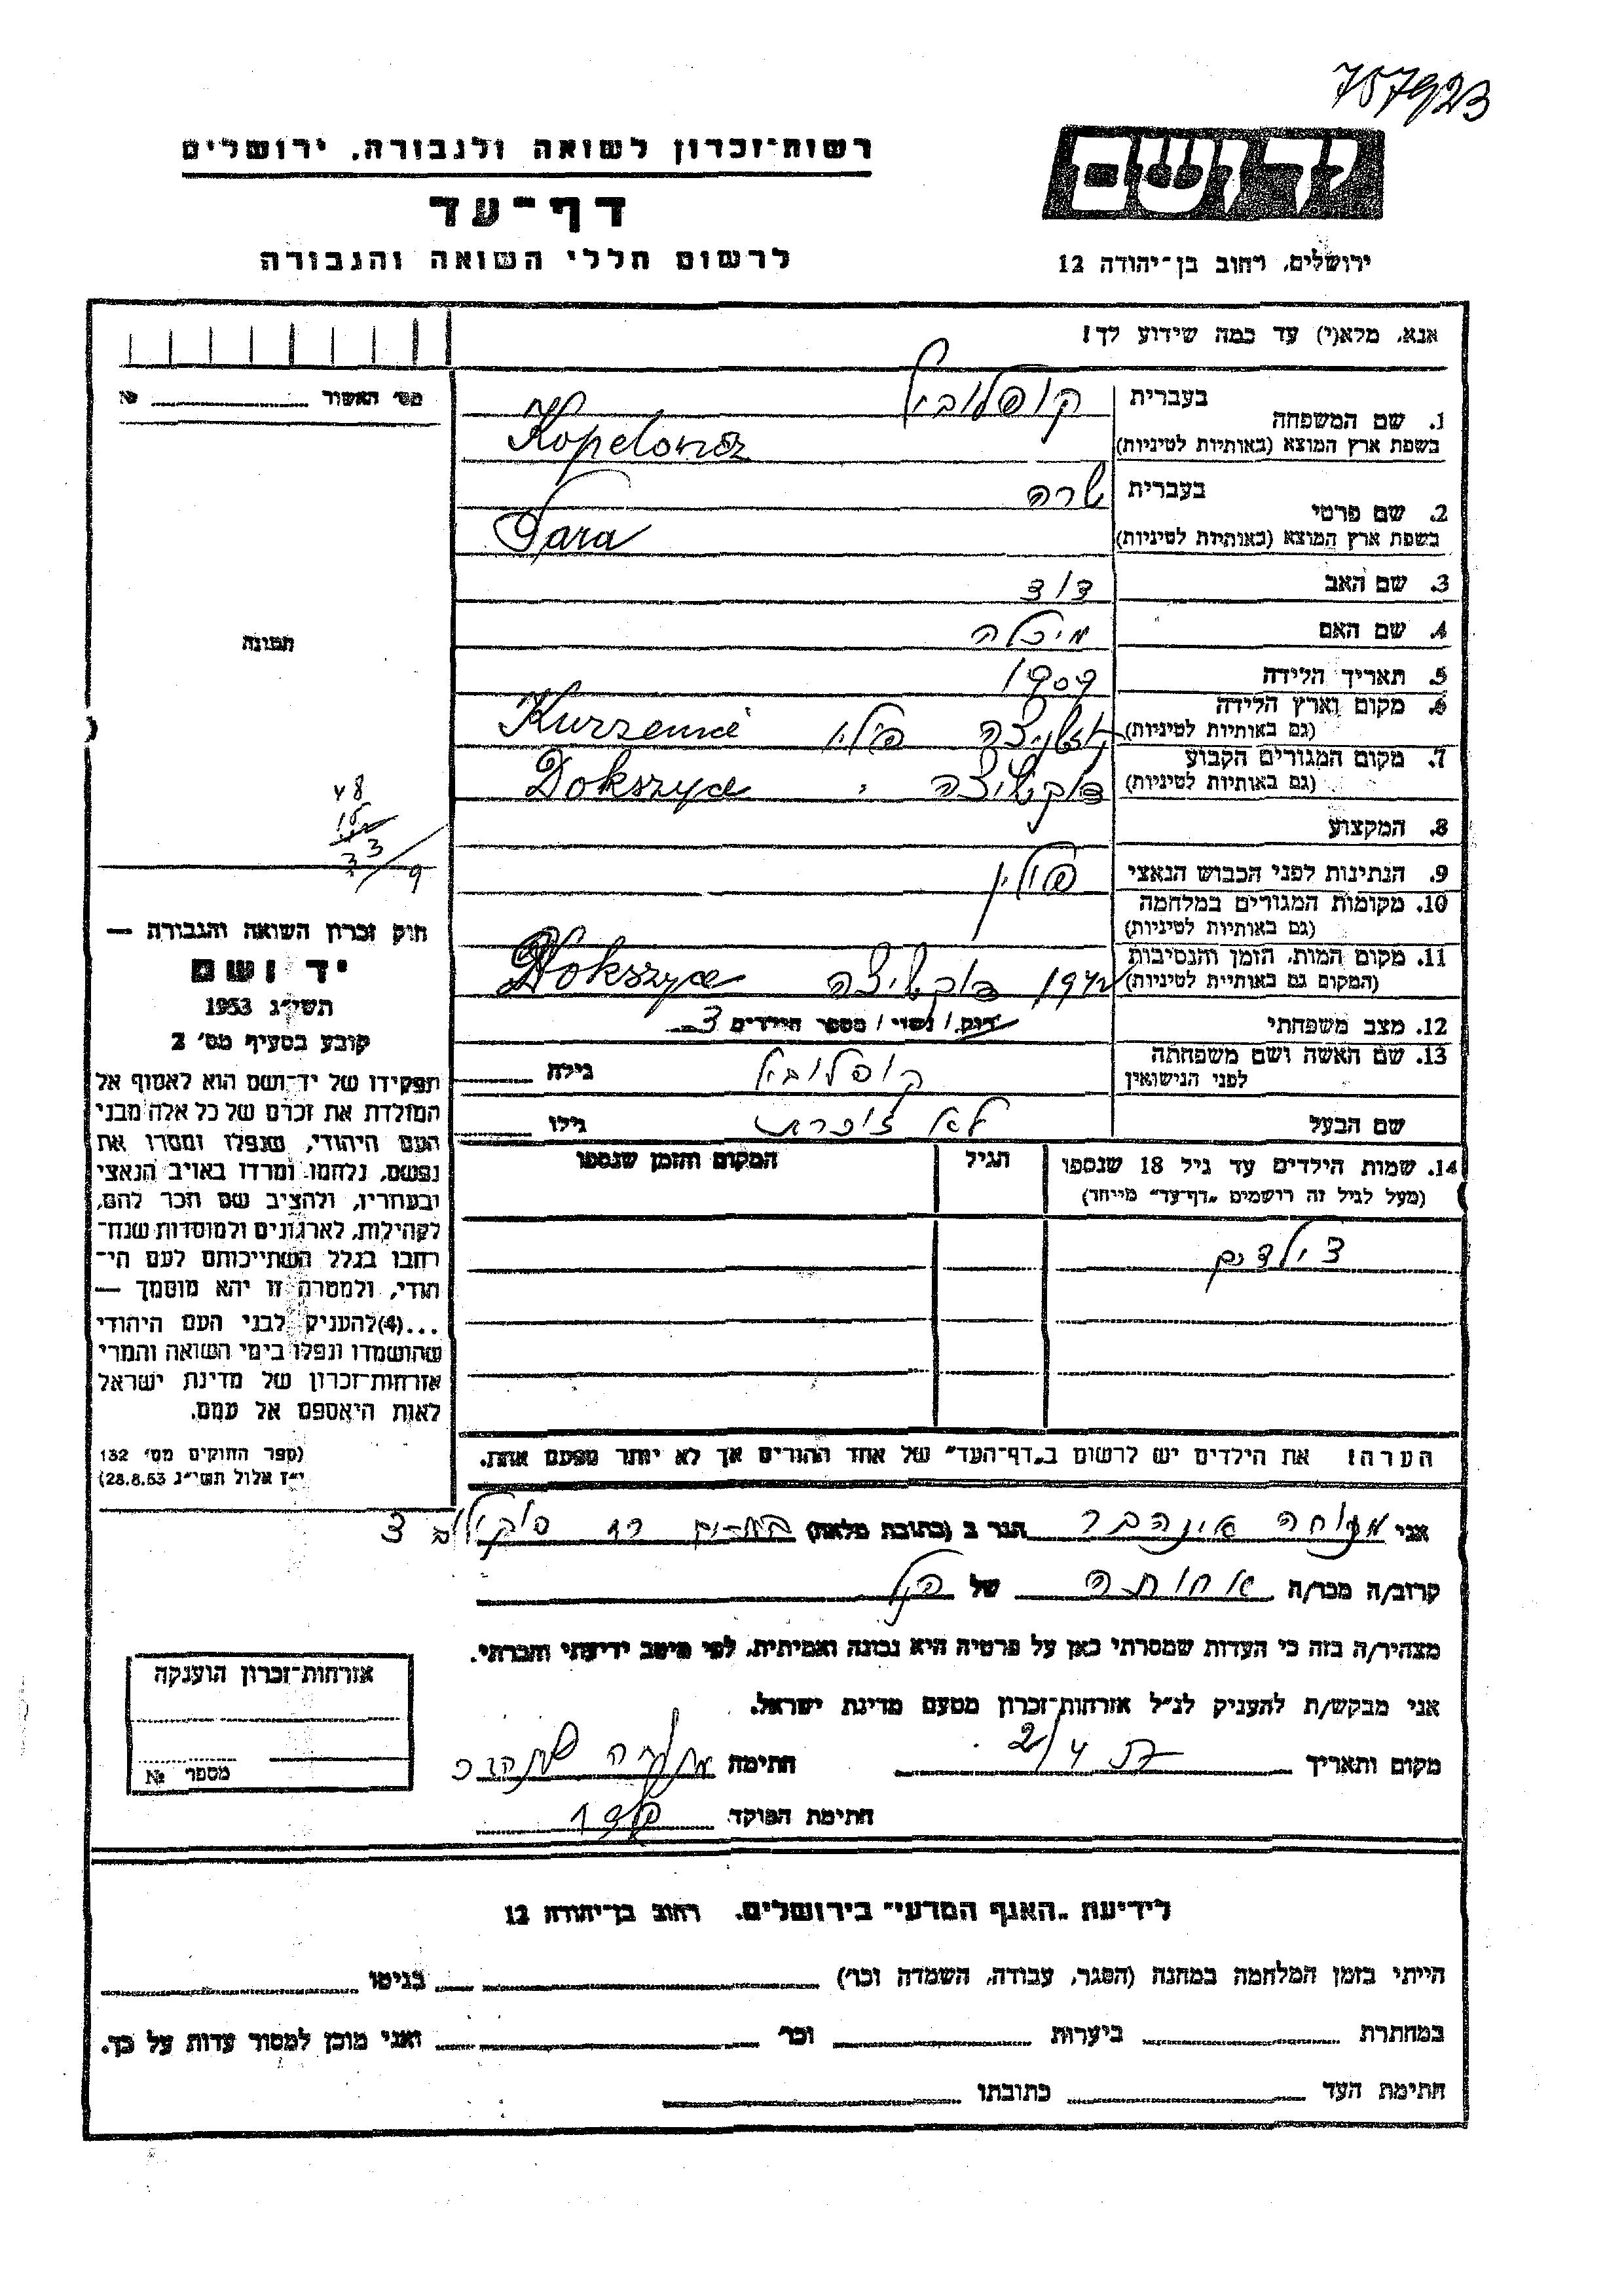 757923
רשות-זכרון לשואה ולגבורה, ירושלים
דף-עד
לרשום חללי השואה והגבורה
יד ושם
ירושלים, רחוב בן-יהודה 12
אנא, מלא(י) עד כמה שידוע לך!
מס׳ האשור № 
1. שם המשפחה
בעברית קופלוביץ
בשפת ארץ המוצא (באותיות לטיניות)
2. שם פרטי
בעברית שרה
בשפת ארץ המוצא (באותיות לטיניות) Sara
3. שם האב דוד
4. שם האם מיכלה
5. תאריך הלידה 1909
6. מקום וארץ הלידה
(גם באותיות לטיניות) פולין
7. מקום המגורים הקבוע
(גם באותיות לטיניות) דוקשיצה Dokszyce
8. המקצוע
9. הנתינות לפני הכבוש הנאצי פולין
10. מקומות המגורים במלחמה
(גם באותיות לטיניות)
11. מקום המות, הזמן והנסיבות
(המקום גם באותיות לטיניות) 1942 דוקשיצה Dokszyce
12. מצב משפחתי רווק / נשוי / מספר הילדים 3
13. שם האשה ושם משפחתה
לפני הנישואין קופלוביץ גילה
שם הבעל לא זוכרת גילו
14. שמות הילדים עד גיל 18 שנספו הגיל המקום והזמן שנספו
(מעל לגיל זה רושמים „דף-עד״ מיוחד)
3 ילדים
הערה! את הילדים יש לרשום ב„דף-העד״ של אחד ההורים אך לא יותר מפעם אחת.
תמונה
48
15
33/9
חוק זכרון השואה והגבורה —
יד ושם
תשי״ג 1953
קובע בסעיף מס׳ 2
תפקידו של יד-ושם הוא לאסוף אל
המולדת את זכרם של כל אלה מבני
העם היהודי, שנפלו ומסרו את
נפשם, נלחמו ומרדו באויב הנאצי
ובעוזריו, ולהציב שם וזכר להם,
לקהילות, לארגונים ולמוסדות שנח-
רבו בגלל השתייכותם לעם הי-
הודי, ולמטרה זו יהא מוסמך —
...(4)להעניק לבני העם היהודי
שהושמדו ונפלו בימי השואה והמרי
אזרחות-זכרון של מדינת ישראל
לאות היאספם אל עמם.
(ספר החוקים מס׳ 132
י״ז אלול תשי״ג 28.8.53)
אני הגר ב (כתובת מלאה) סוקולוב 3
קרוב/ה מכר/ה אחותה של הנ״ל
מצהיר/ה בזה כי העדות שמסרתי כאן על פרטיה היא נכונה ואמיתית, לפי מיטב ידיעתי והכרתי.
אני מבקש/ת להעניק לנ״ל אזרחות-זכרון מטעם מדינת ישראל.
מקום ותאריך 2/4 חתימה
חתימת הפוקד
אזרחות-זכרון הוענקה
מספר №
לידיעת „האגף המדעי״ בירושלים, רחוב בן-יהודה 12
הייתי בזמן המלחמה במחנה (הסגר, עבודה, השמדה וכו׳) בגיטו
במחתרת ביערות וכו׳ ואני מוכן למסור עדות על כך.
חתימת העד כתובתו